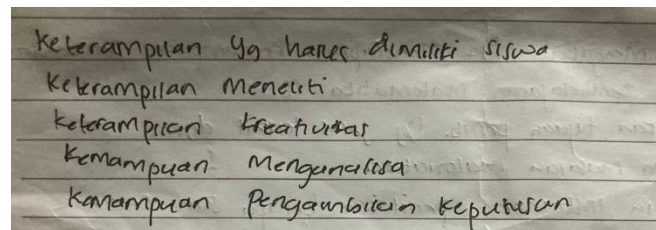 Keterampilan yg harus dimiliki siswa
Keterampilan meneliti
Keterampilan kreativitas
Kemampuan Menganalisa
Kemampuan Pengambilan Keputusan